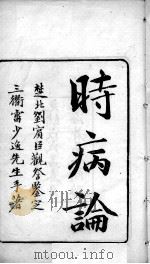 時病論
楚北劉賓臣觀察鑒定
三衢雷少逸先生手著